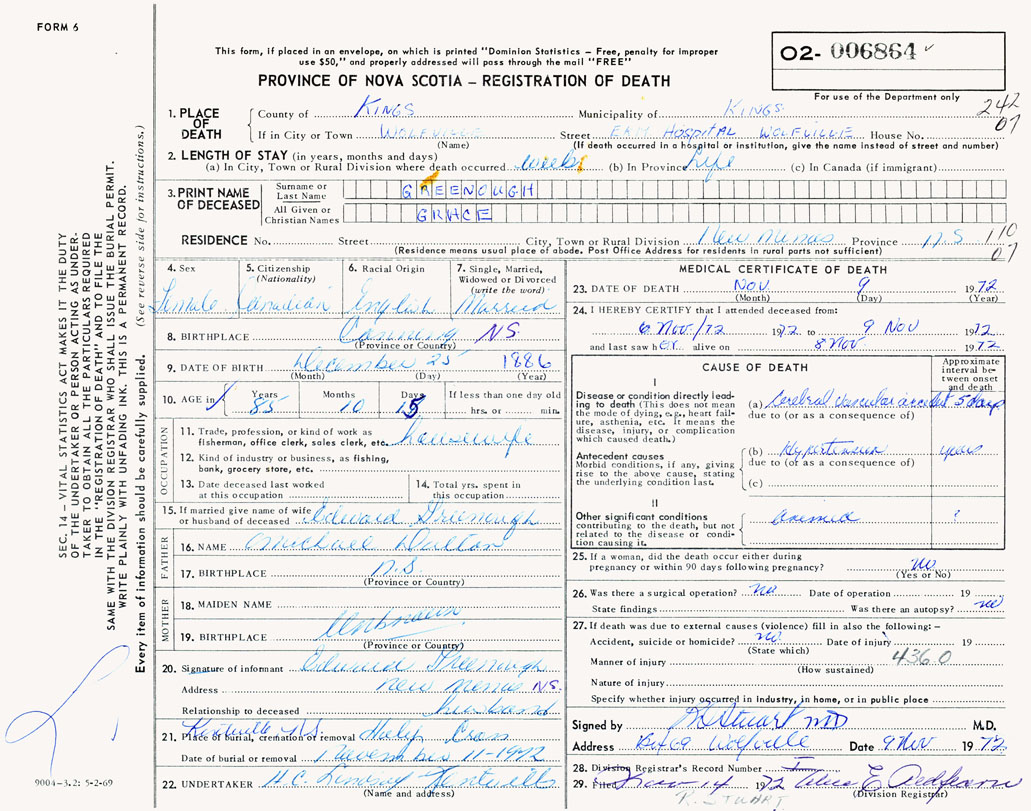 FORM 6
This form, if placed in an envelope, on which is printed "Dominion Statistics – Free, penalty for improper
use $50," and properly addressed will pass through the mail "FREE"
PROVINCE OF NOVA SCOTIA – REGISTRATION OF DEATH
02- 006864
For use of the Department only
242
07
1. PLACE OF DEATH
County of KINGS Municipality of KINGS
If in City or Town WOLFVILLE Street EKM HOSPITAL WOLFVILLE House No.
(Name) (If death occurred in a hospital or institution, give the name instead of street and number)
2. LENGTH OF STAY (in years, months and days)
(a) In City, Town or Rural Division where death occurred weeks (b) In Province Life (c) In Canada (if immigrant)
3. PRINT NAME OF DECEASED
Surname or Last Name GREENOUGH
All Given or Christian Names GRACE
RESIDENCE No. Street City, Town or Rural Division New Minas Province N.S.
110
07
(Residence means usual place of abode. Post Office Address for residents in rural parts not sufficient)
4. Sex
Female
5. Citizenship
(Nationality)
Canadian
6. Racial Origin
English
7. Single, Married,
Widowed or Divorced
(write the word)
Married
8. BIRTHPLACE Canning NS
(Province or Country)
9. DATE OF BIRTH December 25 1886
(Month) (Day) (Year)
10. AGE in
Years Months Days If less than one day old
85 10 15 hrs. or min.
OCCUPATION
11. Trade, profession, or kind of work as
fisherman, office clerk, sales clerk, etc. housewife
12. Kind of industry or business, as fishing,
bank, grocery store, etc.
13. Date deceased last worked
at this occupation
14. Total yrs. spent in
this occupation
15. If married give name of wife
or husband of deceased Edward Greenough
FATHER
16. NAME Michael Dalton
17. BIRTHPLACE N.S.
(Province or Country)
MOTHER
18. MAIDEN NAME
Unknown
19. BIRTHPLACE
(Province or Country)
20. Signature of informant Edward Greenough
Address New Minas N.S.
Relationship to deceased husband
Kentville N.S.
21. Place of burial, cremation or removal Holy Cross
Date of burial or removal November 11-1972
22. UNDERTAKER H.C. Lindsay Kentville
(Name and address)
MEDICAL CERTIFICATE OF DEATH
23. DATE OF DEATH Nov. 9 1972
(Month) (Day) (Year)
24. I HEREBY CERTIFY that I attended deceased from:
6 Nov/72 1972 to 9 Nov 1972
and last saw her alive on 8 Nov 1972
CAUSE OF DEATH
Approximate
interval be-
tween onset
and death
I
Disease or condition directly lead-
ing to death (This does not mean
the mode of dying, e.g., heart fail-
ure, asthenia, etc. It means the
disease, injury, or complication
which caused death.)
(a) Cerebral vascular accident 5 days
due to (or as a consequence of)
Antecedent causes
Morbid conditions, if any, giving
rise to the above cause, stating
the underlying condition last.
(b) Hypertension years
due to (or as a consequence of)
(c)
II
Other significant conditions
contributing to the death, but not
related to the disease or condi-
tion causing it.
anemia ?
25. If a woman, did the death occur either during
pregnancy or within 90 days following pregnancy? no
(Yes or No)
26. Was there a surgical operation? no Date of operation 19
State findings Was there an autopsy? no
27. If death was due to external causes (violence) fill in also the following:–
Accident, suicide or homicide? no Date of injury 19
(State which)
Manner of injury 436.0
(How sustained)
Nature of injury
Specify whether injury occurred in industry, in home, or in public place
Signed by Stuart MD M.D.
Address Box 69 Wolfville Date 9 Nov 1972
28. Division Registrar's Record Number
29. Filed Nov 14 1972
(Division Registrar)
R. STUART
SEC. 14 – VITAL STATISTICS ACT MAKES IT THE DUTY
OF THE UNDERTAKER OR PERSON ACTING AS UNDER-
TAKER TO OBTAIN ALL THE PARTICULARS REQUIRED
IN THE "REGISTRATION OF DEATH" AND TO FILE THE
SAME WITH THE DIVISION REGISTRAR WHO SHALL ISSUE THE BURIAL PERMIT.
WRITE PLAINLY WITH UNFADING INK. THIS IS A PERMANENT RECORD.
Every item of information should be carefully supplied. (See reverse side for instructions.)
9004-3.2: 5-2-69